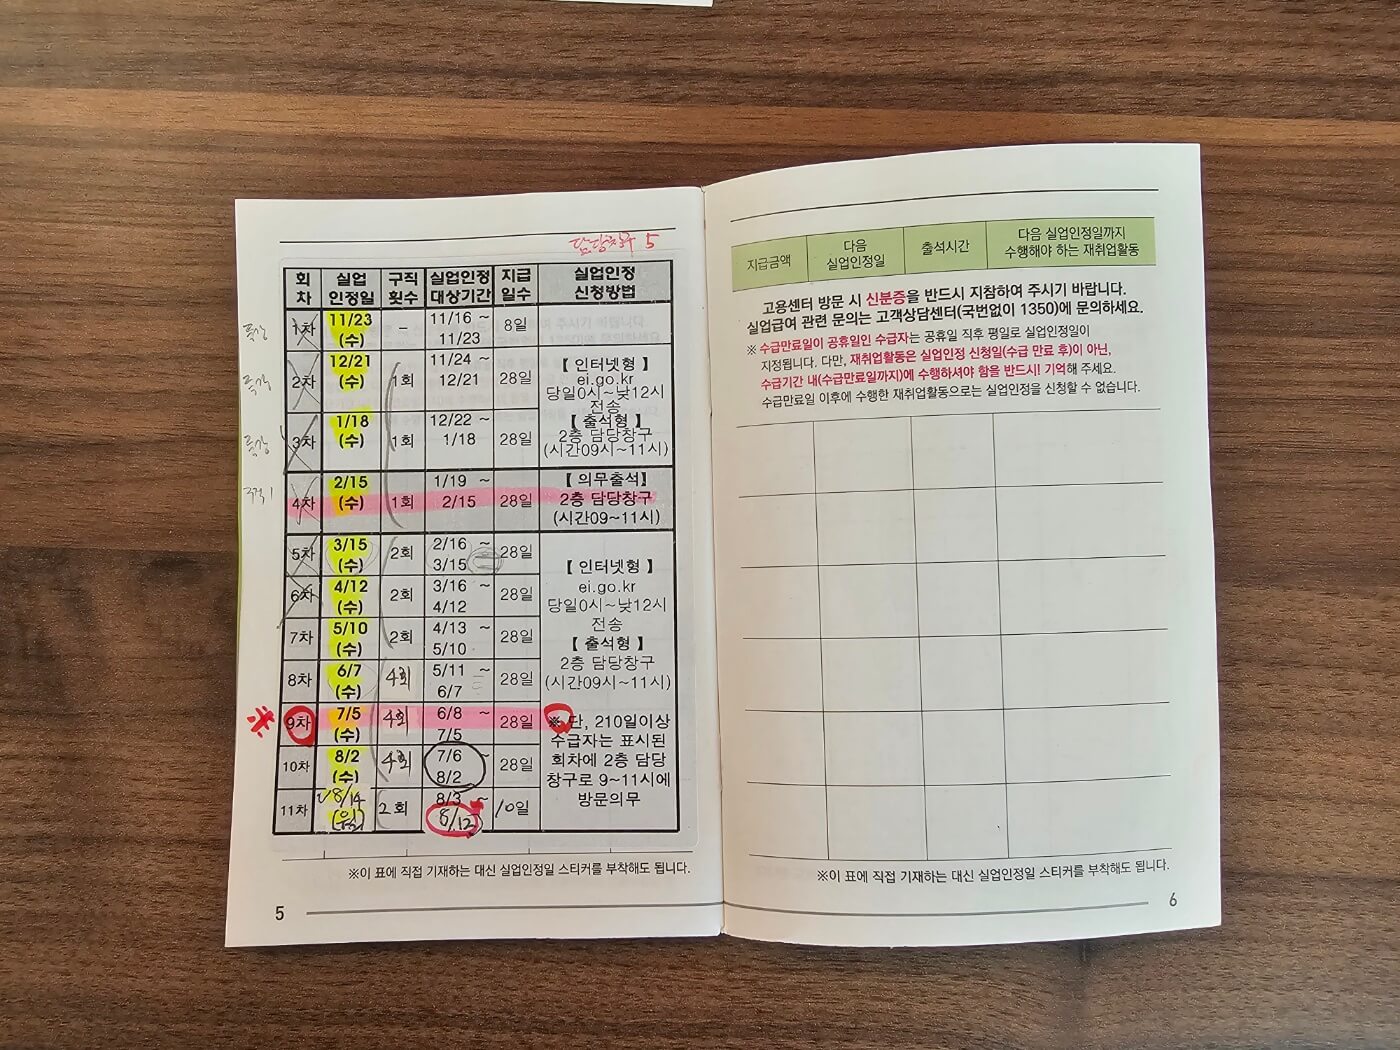 담당창구 5
회차 실업인정일 구직횟수 실업인정대상기간 지급일수 실업인정신청방법
특강 1차 11/23 (수) - 11/16 ~ 11/23 8일
특강 2차 12/21 (수) 1회 11/24 ~ 12/21 28일
특강 3차 1/18 (수) 1회 12/22 ~ 1/18 28일
【 인터넷형 】
ei.go.kr
당일0시~낮12시
전송
【 출석형 】
2층 담당창구
(시간09시~11시)
구직1 4차 2/15 (수) 1회 1/19 ~ 2/15 28일
【 의무출석】
2층 담당창구
(시간09~11시)
5차 3/15 (수) 2회 2/16 ~ 3/15 28일
6차 4/12 (수) 2회 3/16 ~ 4/12 28일
7차 5/10 (수) 2회 4/13 ~ 5/10 28일
8차 6/7 (수) 4회 5/11 ~ 6/7 28일
※ 9차 7/5 (수) 4회 6/8 ~ 7/5 28일
10차 8/2 (수) 4회 7/6 ~ 8/2 28일
11차 8/14 (월) 2회 8/3 ~ 8/12 10일
【 인터넷형 】
ei.go.kr
당일0시~낮12시
전송
【 출석형 】
2층 담당창구
(시간09시~11시)
※ 단, 210일이상
수급자는 표시된
회차에 2층 담당
창구로 9~11시에
방문의무
※이 표에 직접 기재하는 대신 실업인정일 스티커를 부착해도 됩니다.
5
지급금액 다음 실업인정일 출석시간 다음 실업인정일까지 수행해야 하는 재취업활동
고용센터 방문 시 신분증을 반드시 지참하여 주시기 바랍니다.
실업급여 관련 문의는 고객상담센터(국번없이 1350)에 문의하세요.
※ 수급만료일이 공휴일인 수급자는 공휴일 직후 평일로 실업인정일이
지정됩니다. 다만, 재취업활동은 실업인정 신청일(수급 만료 후)이 아닌,
수급기간 내(수급만료일까지)에 수행하셔야 함을 반드시! 기억해 주세요.
수급만료일 이후에 수행한 재취업활동으로는 실업인정을 신청할 수 없습니다.
※이 표에 직접 기재하는 대신 실업인정일 스티커를 부착해도 됩니다.
6